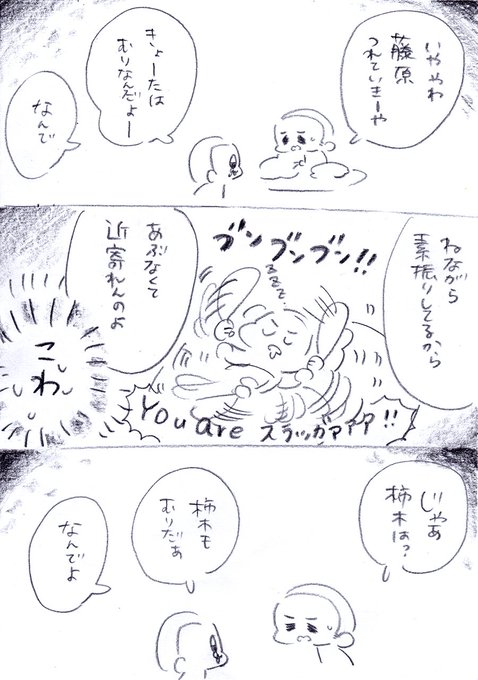 いややわ
藤原
つれていきーや
きょーたは
むりなんだよー
なんで
ねながら
素振りしてるから
ブンブンブン!!
ぐるるる…
あぶなくて
近寄れんのよ
こわ
You are スラッガァァァ!!
じゃあ
柿木は?
柿木も
むりだぁ
なんでよ